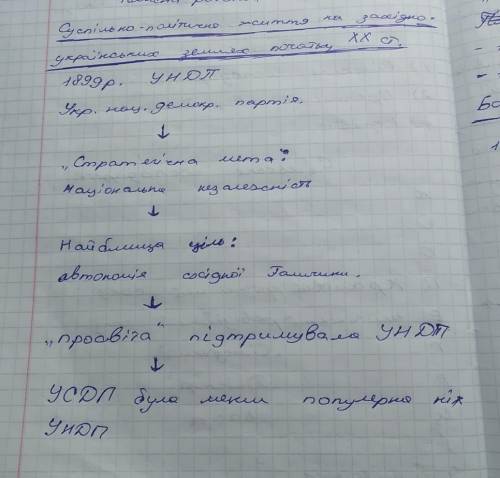 Суспільно-політичне життя на західно-
українських землях початку XX ст.
1899р. УНДП
Укр. нац. демокр. партія.
↓
„Стратегічна мета":
національна незалежність
↓
Найближча ціль:
автономія східної Галичини.
↓
„просвіта" підтримувала УНДП
↓
УСДП була менш популярна ніж
УНДП